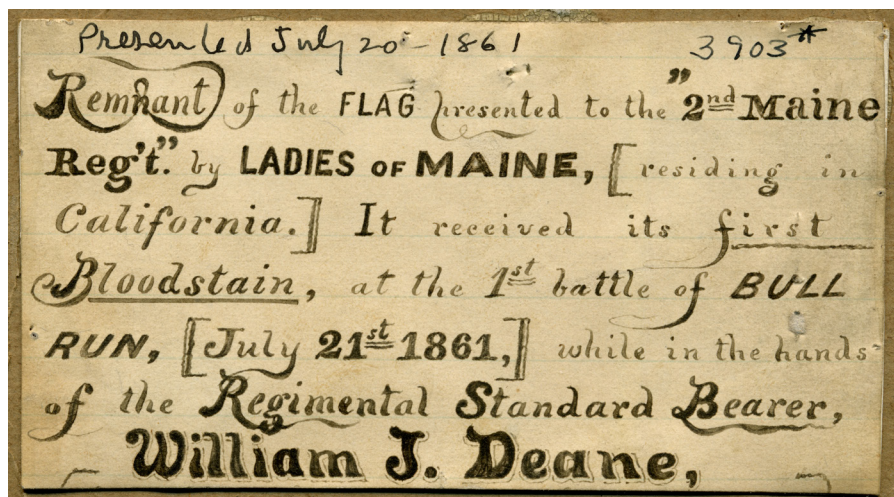 Presented July 20 - 1861 3903*
Remnant of the FLAG presented to the "2nd Maine
Reg't." by LADIES OF MAINE, [residing in
California.] It received its first
Bloodstain, at the 1st battle of BULL
RUN, [July 21st 1861,] while in the hands
of the Regimental Standard Bearer,
William J. Deane,